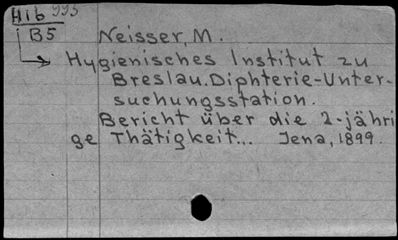 H1b 993
B5 Neisser, M.
Hygienisches Institut zu
Breslau. Diphterie-Unter-
suchungsstation.
Bericht über die 2-jähri
ge Thätigkeit... Jena, 1899.